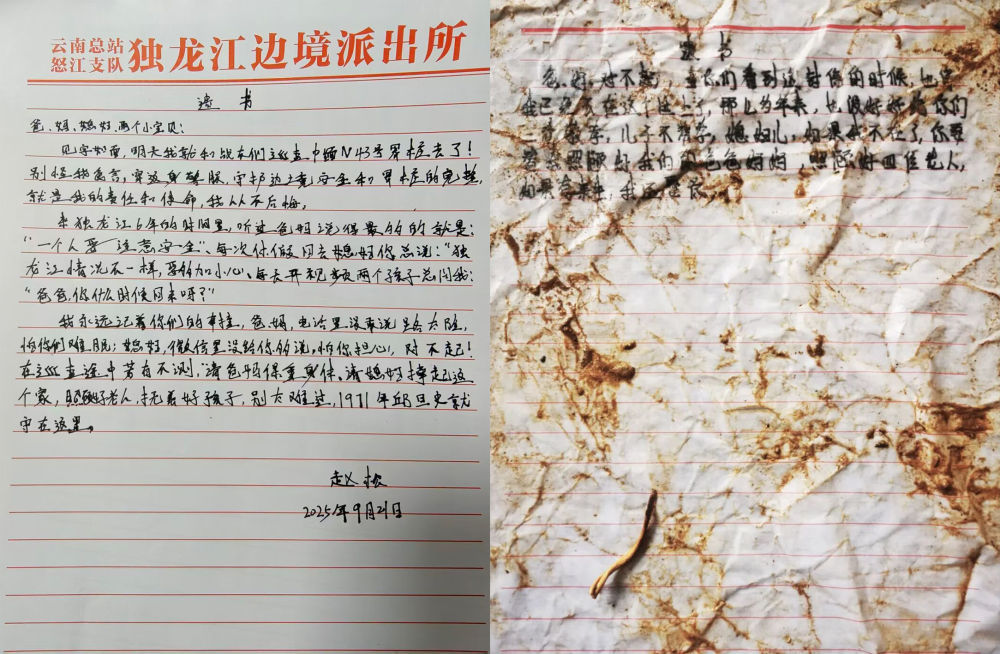 云南总站
怒江支队
独龙江边境派出所
遗书
爸、妈、媳妇、两个小宝贝：
见字如面，明天我就和战友们巡查中缅N43号界桩去了！
别怪我食言，穿这身 服，守护边境安全和界桩的完整，
就是我的责任和使命，我从不后悔。
来独龙江6年的时间里，听过爸妈说得最多的就是：
“一个人要注意安全”、每次休假回去媳妇你总说：“独
龙江情况不一样，要多加小心、每天开视频两个孩子总问我：
“爸爸，你什么时候回来呀？”
我永远记着你们的牵挂，爸妈，电话里没敢说 太险，
怕你们难眠；媳妇，微信里没给你多说，怕你担心，对不起！
在巡查途中若有不测，请爸妈保重身体，请媳妇撑起这
个家，照顾好老人，抚养好孩子，别太难过，1971年
守在这里。
赵松
2025年9月21日
遗书
爸、妈、对不起， 你们看到这封信的时候，也许
我已经不在这个世上了，那几年来，也没好好给你们
，儿子不孝，媳妇儿，如果我不在了，你要
照顾好我们的爸爸妈妈，照顾好 老人，
如果 ，我还